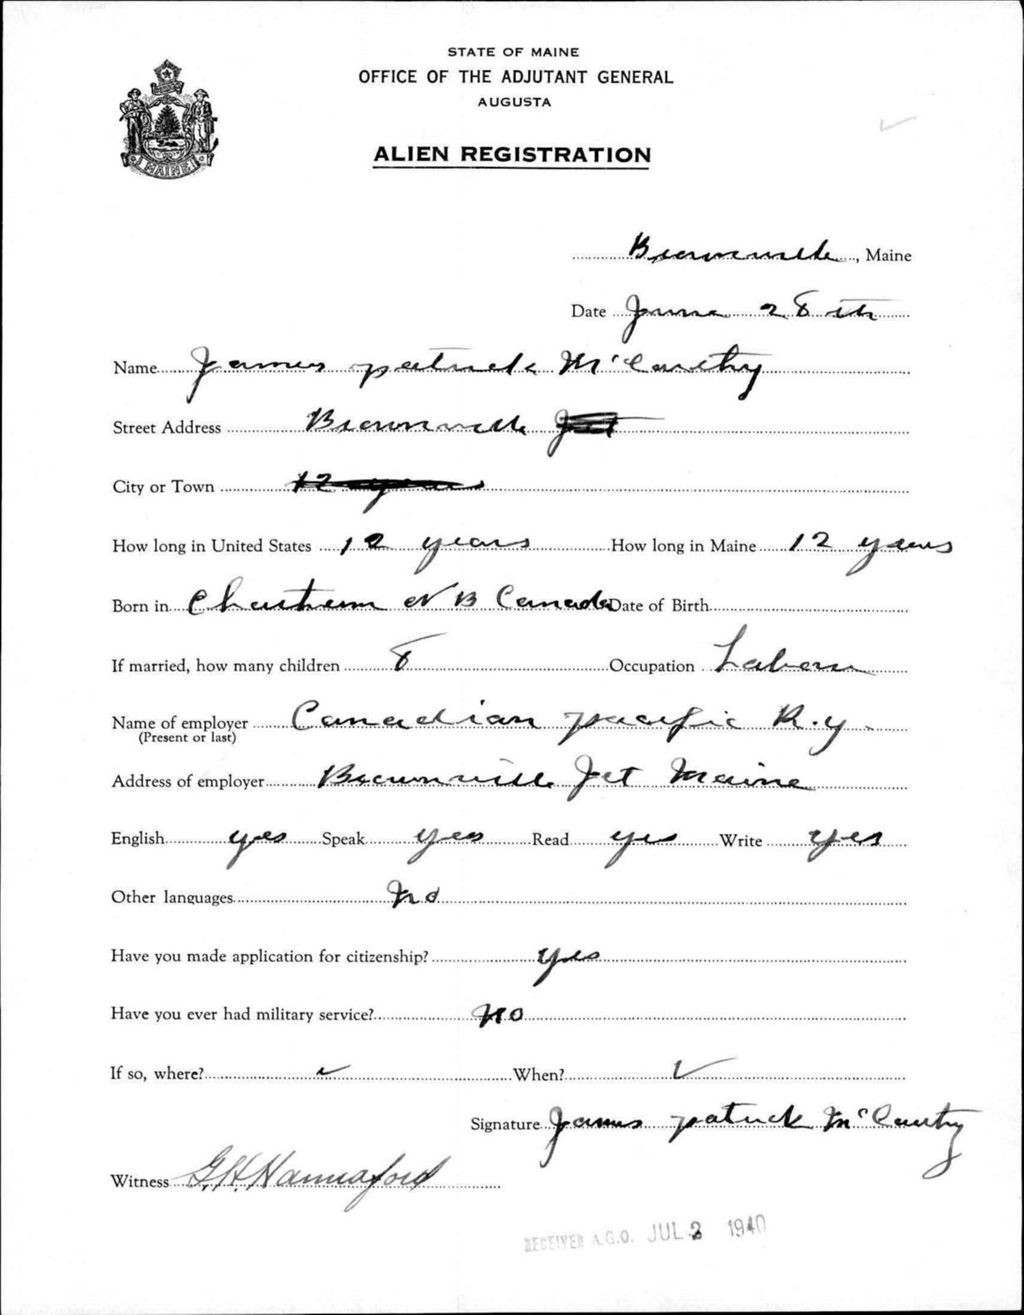 STATE OF MAINE
OFFICE OF THE ADJUTANT GENERAL
AUGUSTA
ALIEN REGISTRATION
MAINE
Brownville, Maine
Date June 28th
Name James patrick McCarthy
Street Address Brownville Jct
City or Town 12 years
How long in United States 12 years How long in Maine 12 years
Born in N B Canada Date of Birth
If married, how many children 8 Occupation
Name of employer Canadian pacific R.y.
(Present or last)
Address of employer Brownville Jct Maine
English yes Speak yes Read yes Write yes
Other languages no
Have you made application for citizenship? yes
Have you ever had military service? no
If so, where? ✓ When? ✓
Signature James patrick McCarthy
Witness G.H. Hannaford
RECEIVED A.G.O. JUL 2 1940